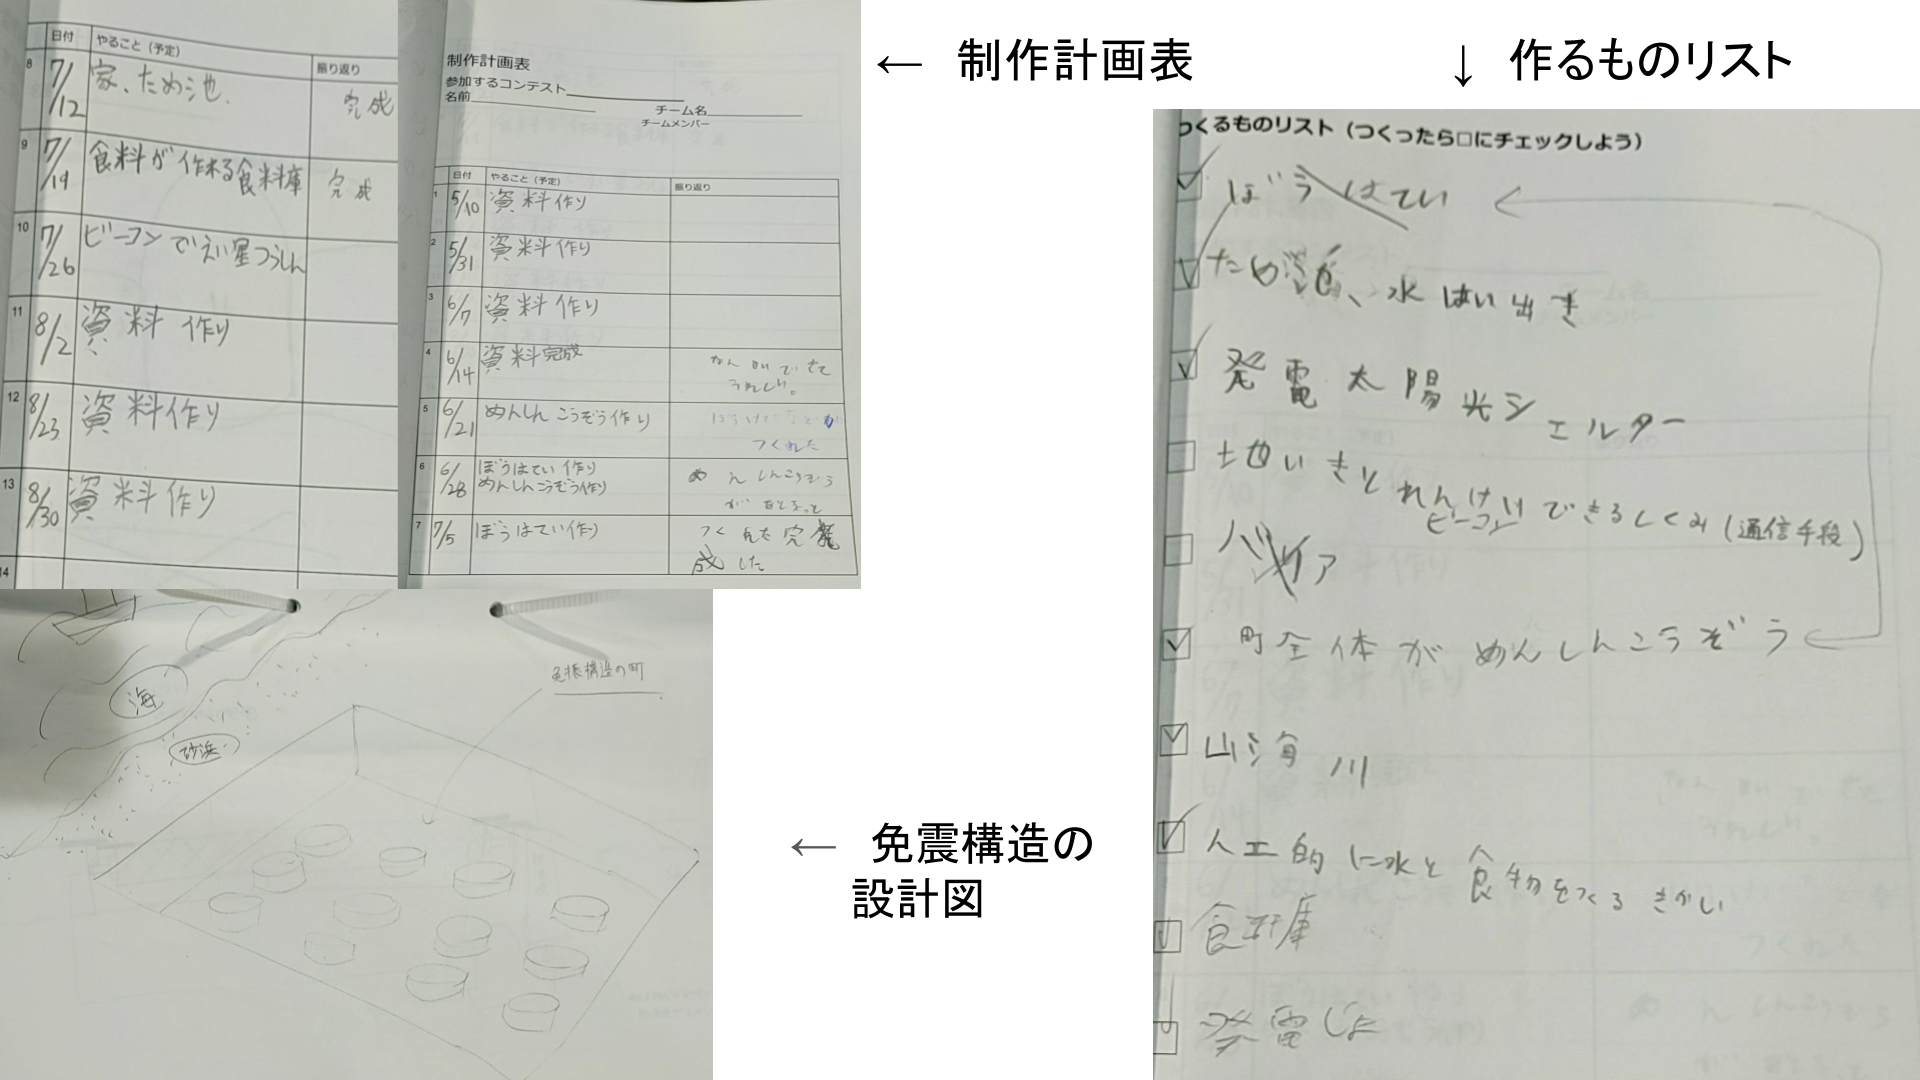 日付 やること（予定） 振り返り
8 7/12 家、ため池、 完成
9 7/19 食料が作れる食料庫 完成
10 7/26 ビーコンでえい星つうしん
11 8/2 資料作り
12 8/23 資料作り
13 8/30 資料作り
14
制作計画表
参加するコンテスト
名前
チーム名
チームメンバー
日付 やること（予定） 振り返り
1 5/10 資料作り
2 5/31 資料作り
3 6/7 資料作り
4 6/14 資料完成
うれしい。
5 6/21 めんしんこうぞう作り
つくれた
6 6/28 ぼうはてい作り
めんしんこうぞう作り
めんしんこうぞう
が
7 7/5 ぼうはてい作り
つくれた完
成した
← 制作計画表
↓ 作るものリスト
つくるものリスト（つくったら□にチェックしよう）
ぼうはてい
ため池、水はい出き
発電太陽光シェルター
土地いきとれんけいできるしくみ（通信手段）
ビーコン
バリア
町全体がめんしんこうぞう
山海川
人工的に水と食物をつくるきかい
食料庫
発電じょ
海
砂浜
免振構造の町
← 免震構造の
設計図